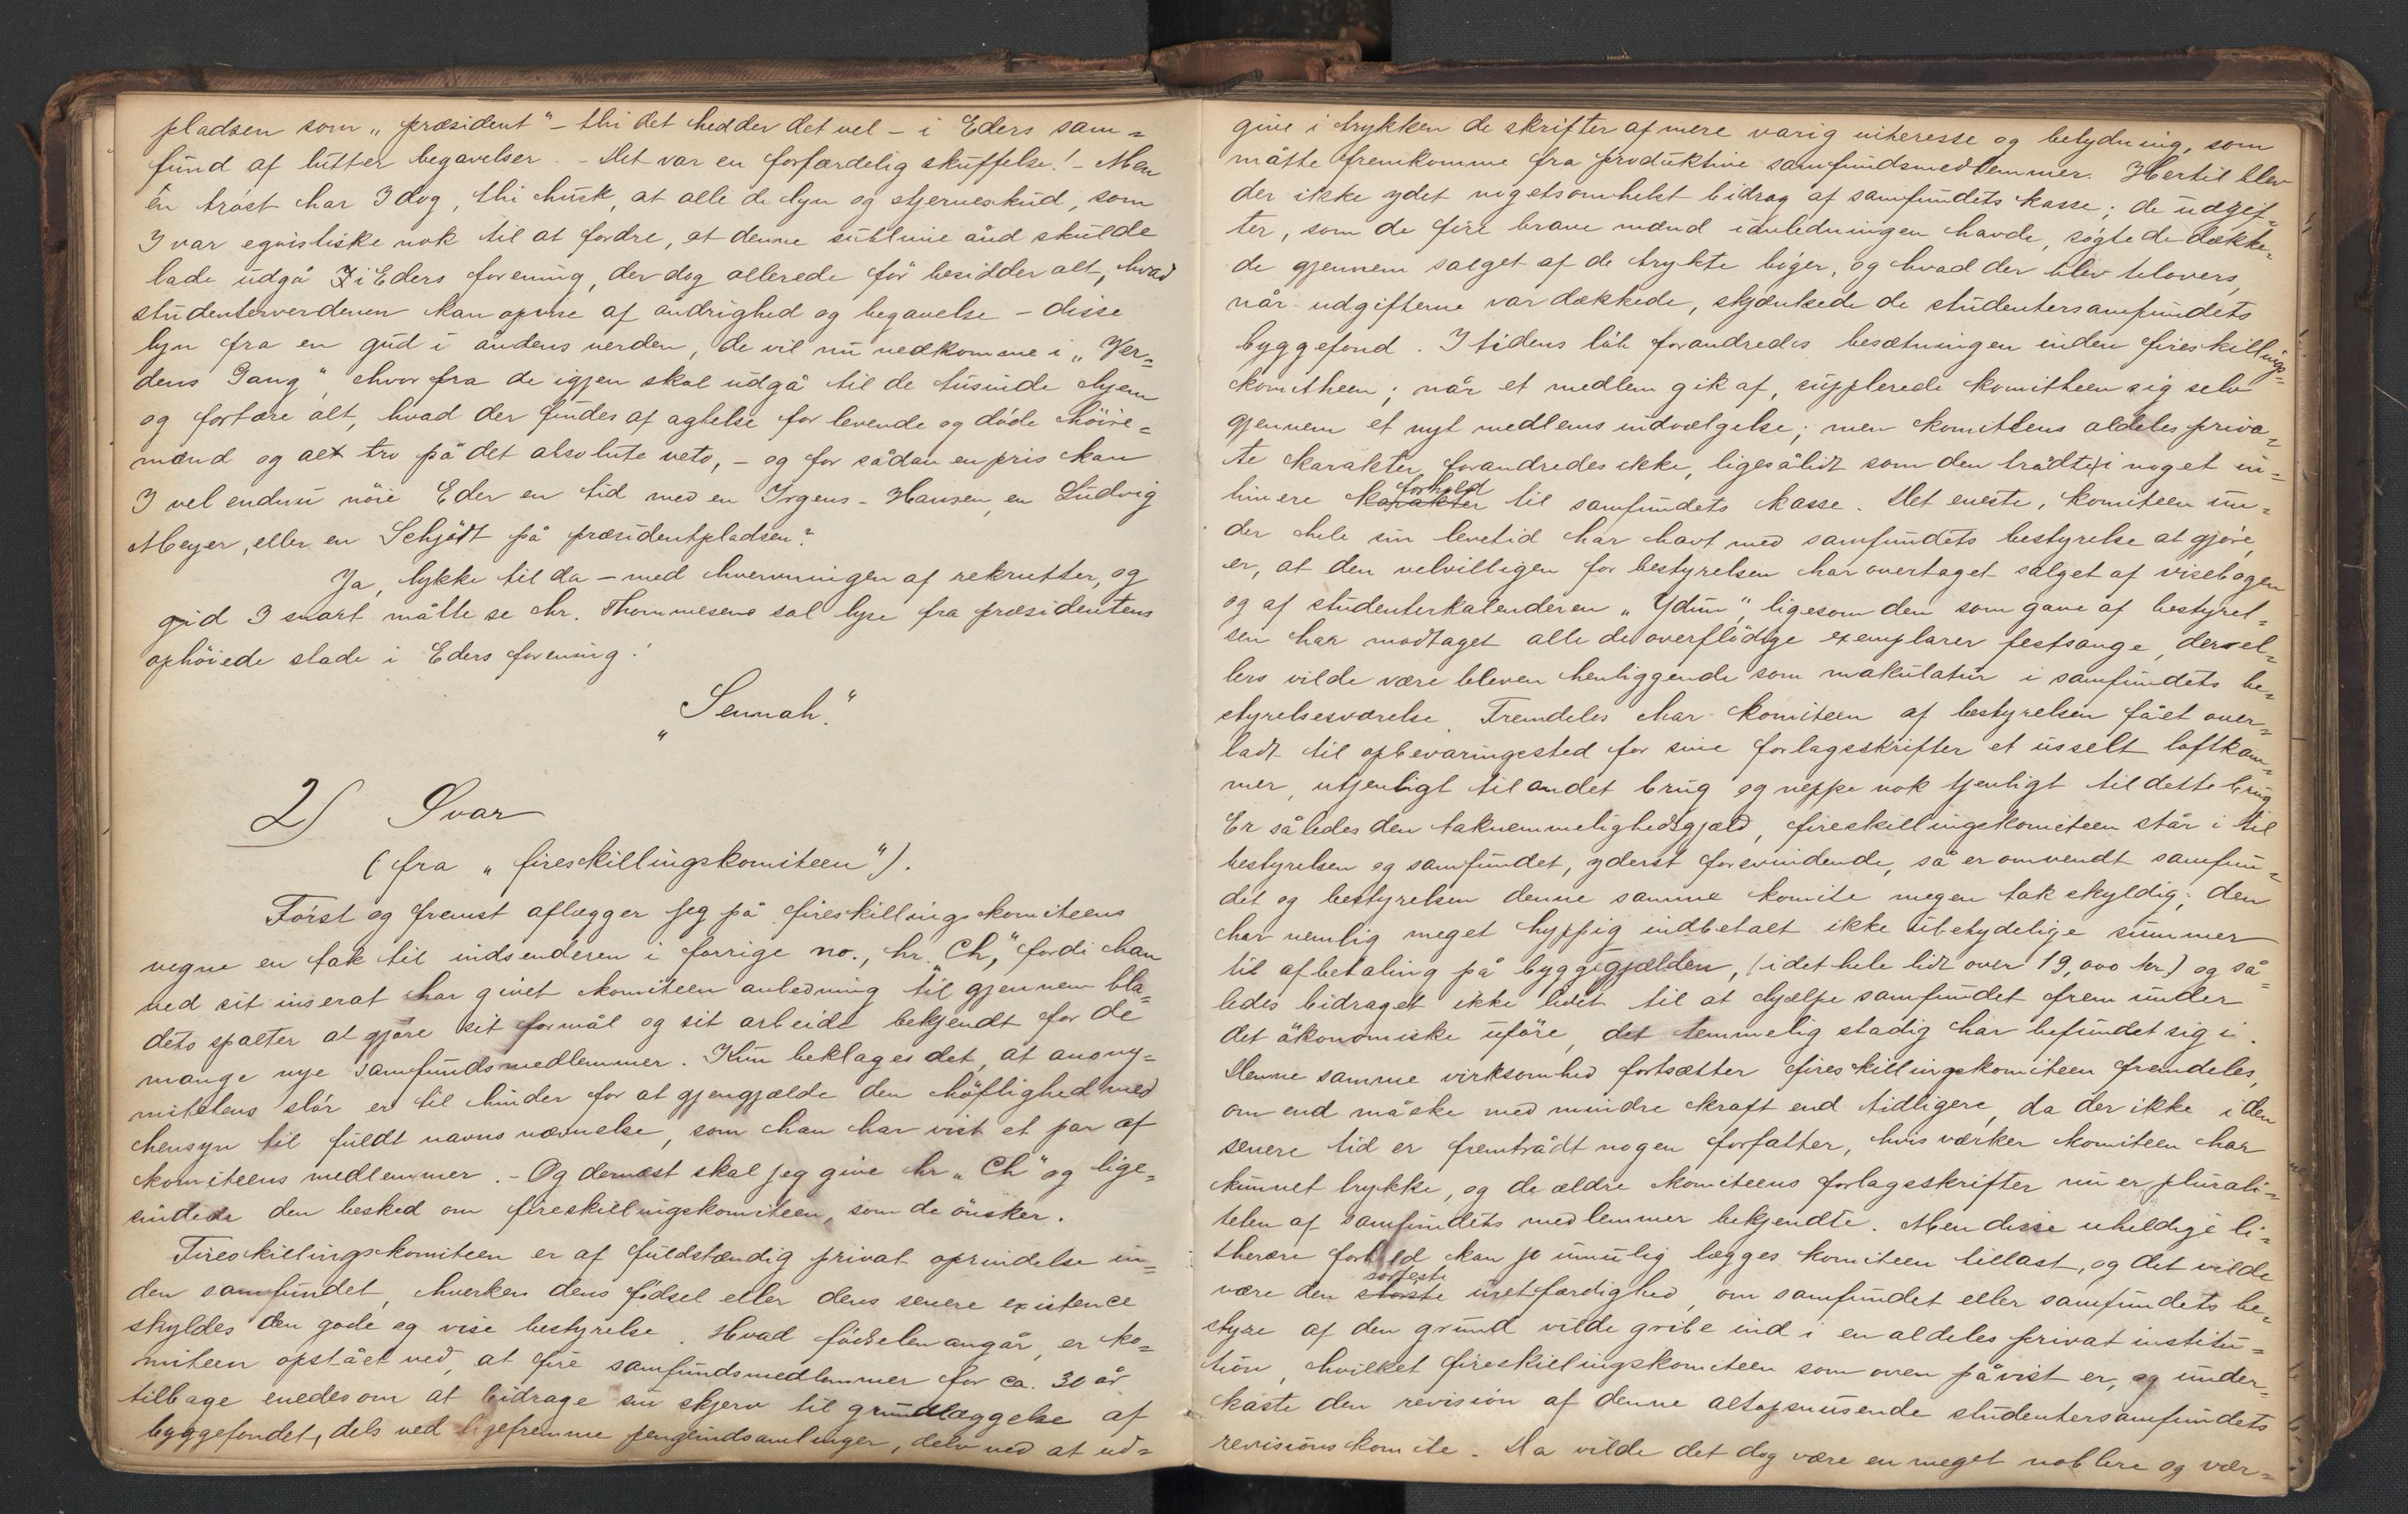 pladsen som „præsident“ – thi det hedder det vel – i Eders sam=
fund af lutter begavelser. – Det var en forfærdelig skuffelse! – Men
én trøst har I dog, thi husk, at alle de lyn og stjerneskud, som
I var egoistiske nok til at fordre, at denne sublime ånd skulde
lade udgå i Eders forening, der dog allerede før besidder alt, hvad
studenterverdenen kan opvise af åndrighed og begavelse – disse
lyn fra en gud i åndens verden, de vil nu nedkomme i „Ver=
dens Gang“, hvorfra de igjen skal udgå til de tusinde hjem
og fortære alt, hvad der findes af agtelse for levende og døde høire=
mænd og alt tro på det absolute veto, – og for sådan en pris kan
I vel endnu nöie Eder en tid med en Irgens-Hansen, en Ludvig
Meyer, eller en Schjødt på præsidentpladsen?
Ja, lykke til da – med hvervningen af rekrutter, og
gid I snart måtte se hr. Thommesens sol lyse fra præsidentens
ophöiede stade i Eders forening!
„Sennah.“
2) Svar
(fra „fireskillingskomiteen“).
Først og fremst aflægger jeg på fireskillingskomiteens
vegne en tak til indsenderen i forrige no., hr. „Ch“, fordi han
ved sit inserat har givet komiteen anledning til gjennem bla=
dets spalter at gjøre sit formål og sit arbeide bekjendt for de
mange nye samfundsmedlemmer. Kun beklages det, at anony=
mitetens slør er til hinder for at gjengjælde den høflighed med
hensyn til fuldt navns nævnelse, som han har vist et par af
komiteens medlemmer. – Og dernæst skal jeg give hr „Ch“ og lige=
sindede den besked om fireskillingskomiteen, som de ønsker.
Fireskillingskomiteen er af fuldstændig privat oprindelse in=
den samfundet, hverken dens fødsel eller dens senere existence
skyldes den gode og vise bestyrelse. Hvad fødselen angår, er ko=
miteen opstået ved, at fire samfundsmedlemmer for ca. 30 år
tilbage enedes om at bidrage sin skjerv til grundlæggelse af
byggefondet, dels ved ligefremme pengeindsamlinger, dels ved at ud=
give i trykken de skrifter af mere varig interesse og betydning, som
måtte fremkomme fra produktive samfundsmedlemmer. Hertil blev
der ikke ydet nogetsomhelst bidrag af samfundets kasse; de udgif=
ter, som de fire brave mænd i anledningen havde, søgte de dække=
de gjennem salget af de trykte bøger, og hvad der blev tilovers,
når udgifterne var dækkede, skjænkede de studentersamfundets
byggefond. I tidens löb forandredes besætningen inden fireskillings=
komitheen; når et medlem gik af, supplerede komitheen sig selv
gjennem et nyt medlems indvælgelse; men komiteens aldeles priva=
te karakter forandredes ikke, ligesålidt som den trådte i noget in=
timere karakter forhold til samfundets kasse. Det eneste, komiteen un=
der hele sin levetid har havt med samfundets bestyrelse at gjøre,
er, at den velvilligen for bestyrelsen har overtaget salget af visebogen
og af studenterkalenderen „Ydun“, ligesom den som gave af bestyrel=
sen har modtaget alle de overflødige exemplarer festsange, der el=
lers vilde være bleven henliggende som makulatur i samfundets be=
styrelsesværelse. Fremdeles har komiteen af bestyrelsen fået over=
ladt til opbevaringssted for sine forlagsskrifter et usselt loftkam=
mer, utjenligt til andet brug og neppe nok tjenligt til dette brug.
Er således den taknemmelighedsgjæld, fireskillingskomiteen står i til
bestyrelsen og samfundet, yderst forsvindende, så er omvendt samfun=
det og bestyrelsen denne samme komite megen tak skyldig; den
har nemlig meget hyppig indbetalt ikke ubetydelige summer
til afbetaling på byggegjælden, (i det hele lidt over 19,000 kr.) og så=
ledes bidraget ikke lidet til at hjælpe samfundet frem under
det økonomiske uføre, det temmelig stadig har befundet sig i.
Denne samme virksomhed fortsætter fireskillingskomiteen fremdeles,
om end måske med mindre kraft end tidligere, da der ikke i den
senere tid er fremtrådt nogen forfatter, hvis værker komiteen har
kunnet trykke, og de ældre komiteens forlagsskrifter nu er plurali=
teten af samfundets medlemmer bekjendte. Men disse uheldige li=
therære forhold kan jo umulig lægges komiteen tillast, og det vilde
være den største sorteste uretfærdighed, om samfundet eller samfundets be=
styre af den grund vilde gribe ind i en aldeles privat institu=
tion, hvilket fireskillingskomiteen som oven påvist er, og under=
kaste den revision af denne altopsnusende studentersamfundets
revisionskomite. Da vilde det dog være en meget noblere og vær=